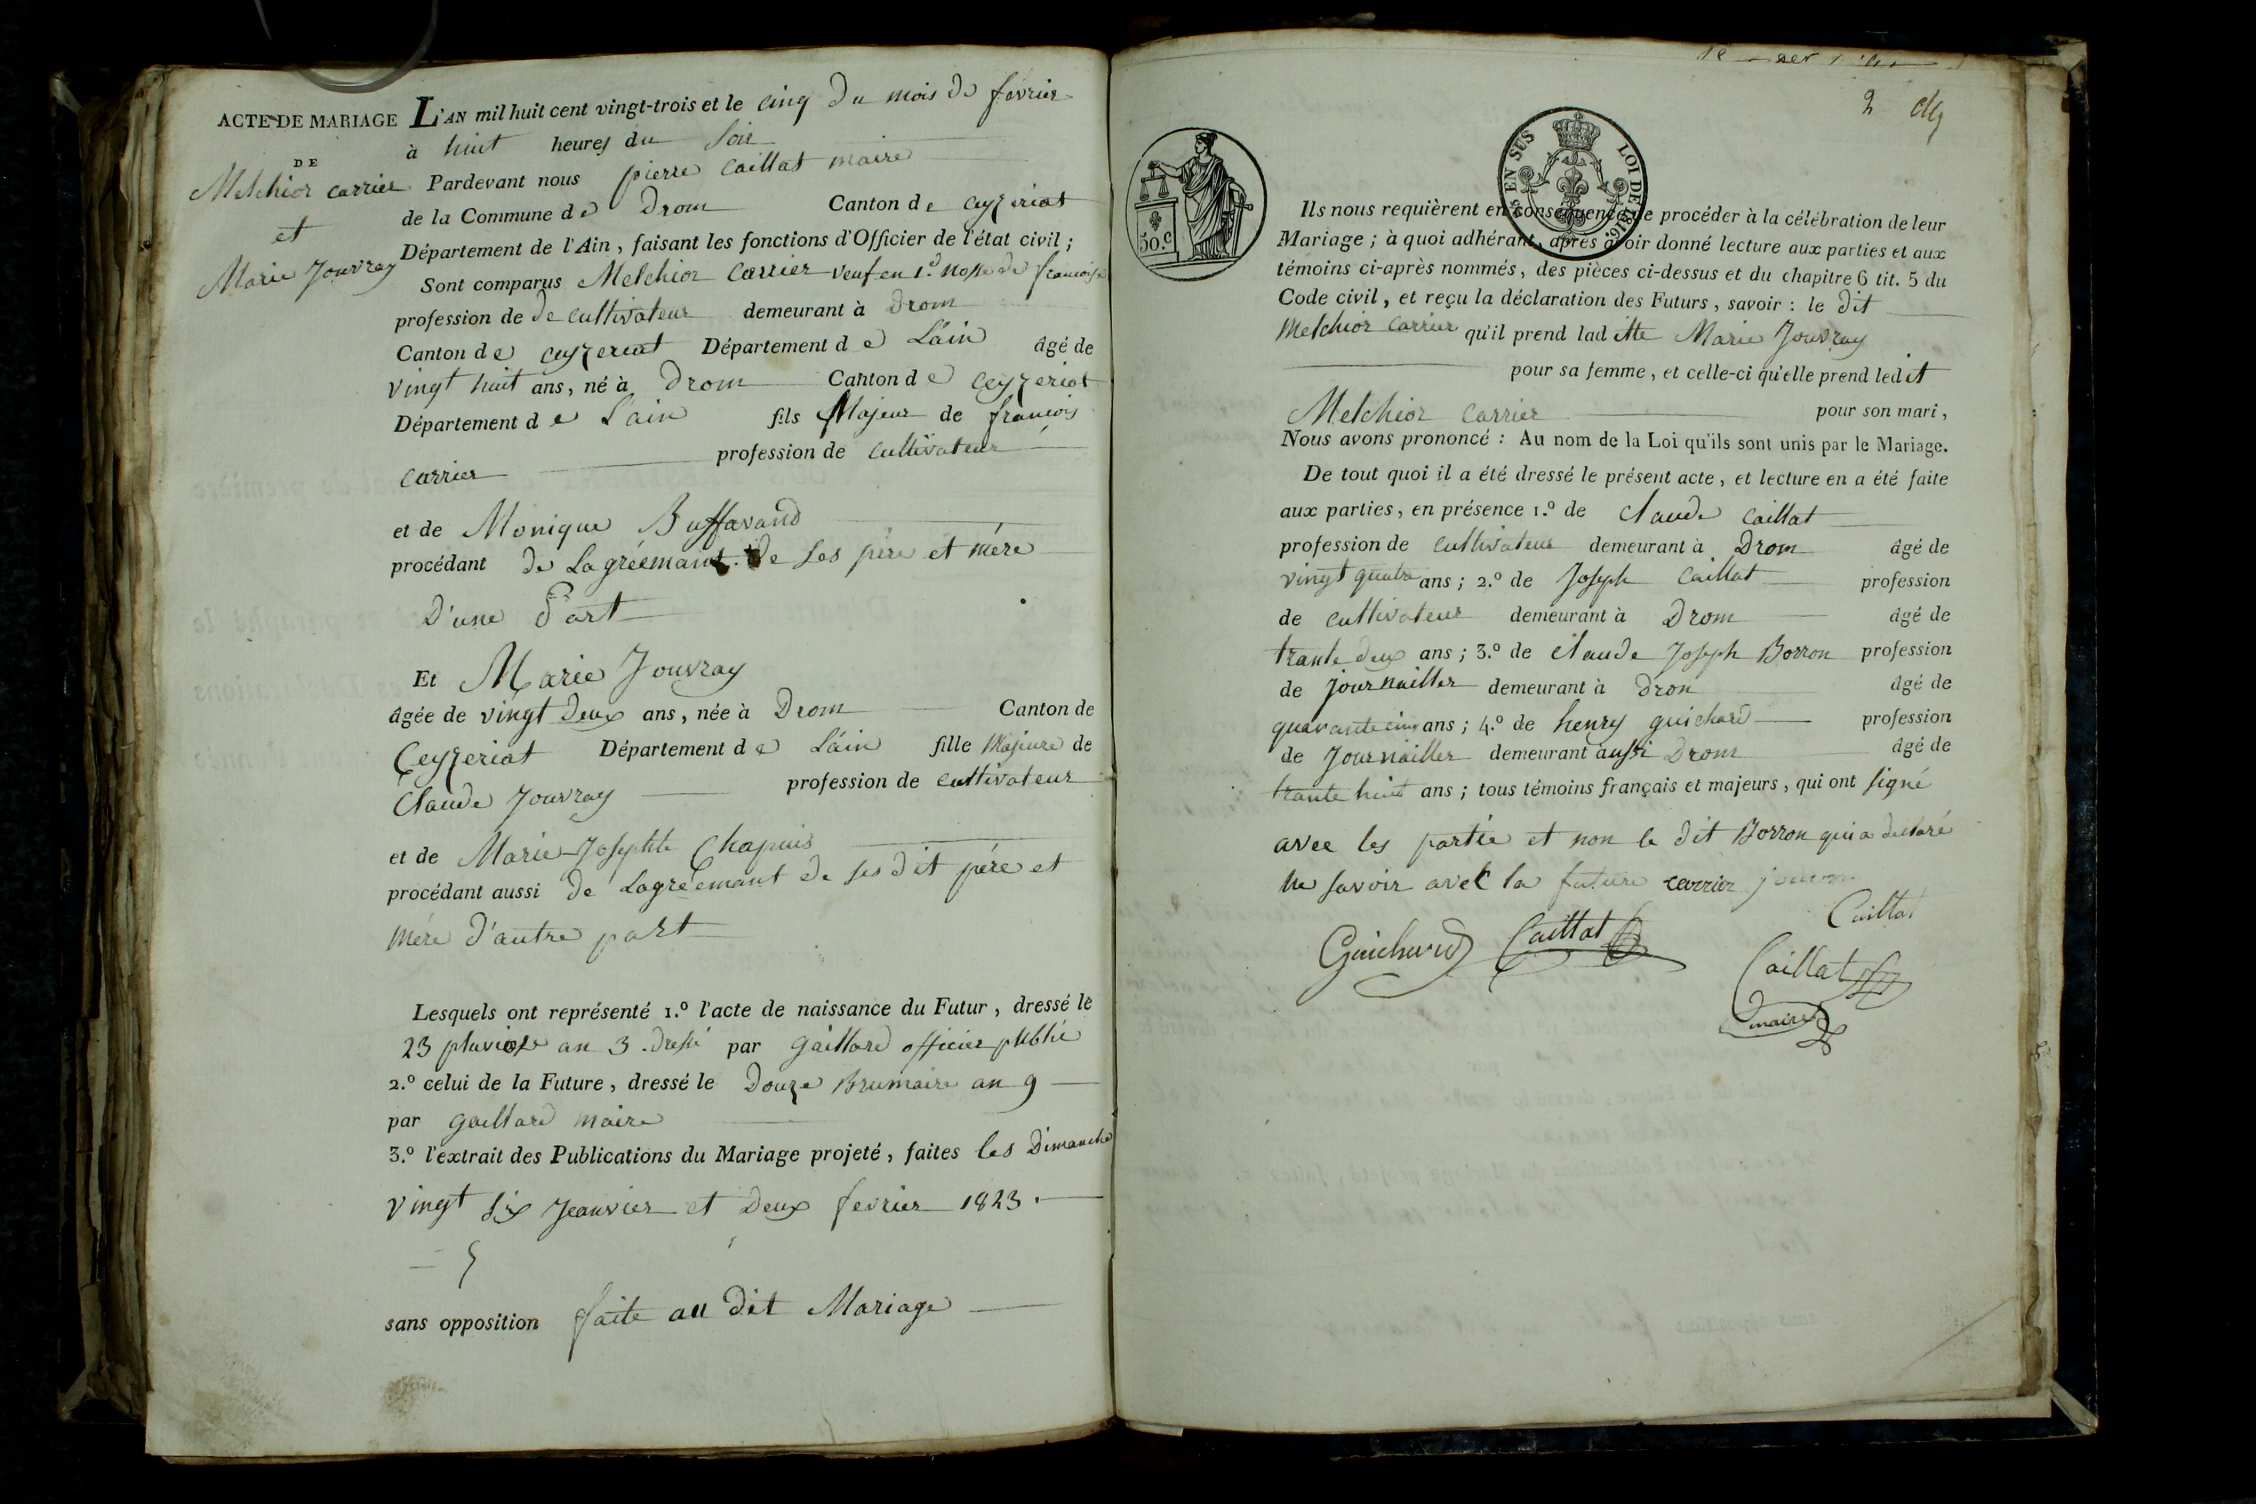 ACTE DE MARIAGE
DE
Melchior carrier
et
Marie Jouvray
L'AN mil huit cent vingt-trois et le cinq du mois de fevrier
à huit heures du soir
Pardevant nous pierre Caillat maire
de la Commune de Drom Canton de Ceyzeriat
Département de l'Ain, faisant les fonctions d'Officier de l'état civil;
Sont comparus Melchior Carrier veuf en 1.d de francoise
profession de de cultivateur demeurant à Drom
Canton de ceyzeriat Département de L'ain âgé de
vingt huit ans, né à Drom Canton de Ceyzeriat
Département de L'ain fils Majeur de francois
carrier profession de cultivateur
et de Monique Buffavand
procédant de Lagréemant de ses pére et mére
D'une Part
Et Marie Jouvray
âgée de vingt deux ans, née à Drom Canton de
Ceyzeriat Département de L'ain fille Majeure de
Claude Jouvray profession de cultivateur
et de Marie Josephte Chapuis
procédant aussi de Lagréemant de ses dit pére et
mére d'autre part
Lesquels ont représenté 1.º l'acte de naissance du Futur, dressé le
23 pluviose an 3 . dressé par gaillard officier publié
2.º celui de la Future, dressé le Douze Brumaire an 9
par gaillard maire
3.º l'extrait des Publications du Mariage projeté, faites les Dimanche
vingt six Jeanvier et Deux fevrier 1823.
sans opposition faite au dit Mariage
2
50.C
EN SUS LOI DE 1816
Ils nous requièrent en conséquence de procéder à la célébration de leur
Mariage; à quoi adhérant, après avoir donné lecture aux parties et aux
témoins ci-après nommés, des pièces ci-dessus et du chapitre 6 tit. 5 du
Code civil, et reçu la déclaration des Futurs, savoir: le dit
Melchior Carrier qu'il prend laditte Marie Jouvray
pour sa femme, et celle-ci qu'elle prend ledit
Melchior Carrier pour son mari,
Nous avons prononcé: Au nom de la Loi qu'ils sont unis par le Mariage.
De tout quoi il a été dressé le présent acte, et lecture en a été faite
aux parties, en présence 1.º de Claude Caillat
profession de cultivateur demeurant à Drom âgé de
vingt quatre ans; 2.º de Joseph Caillat profession
de cultivateur demeurant à Drom âgé de
trante deux ans; 3.º de Claude Joseph Borron profession
de Journailler demeurant à Dron âgé de
quarante cinq ans; 4.º de henry guichard profession
de Journailler demeurant aussi Drom âgé de
trante huit ans; tous témoins français et majeurs, qui ont signé
avec les partie et non le dit Borron qui a declaré
ne savoir avec la future carrier
Caillat
Guichard Caillat
Caillat
maire